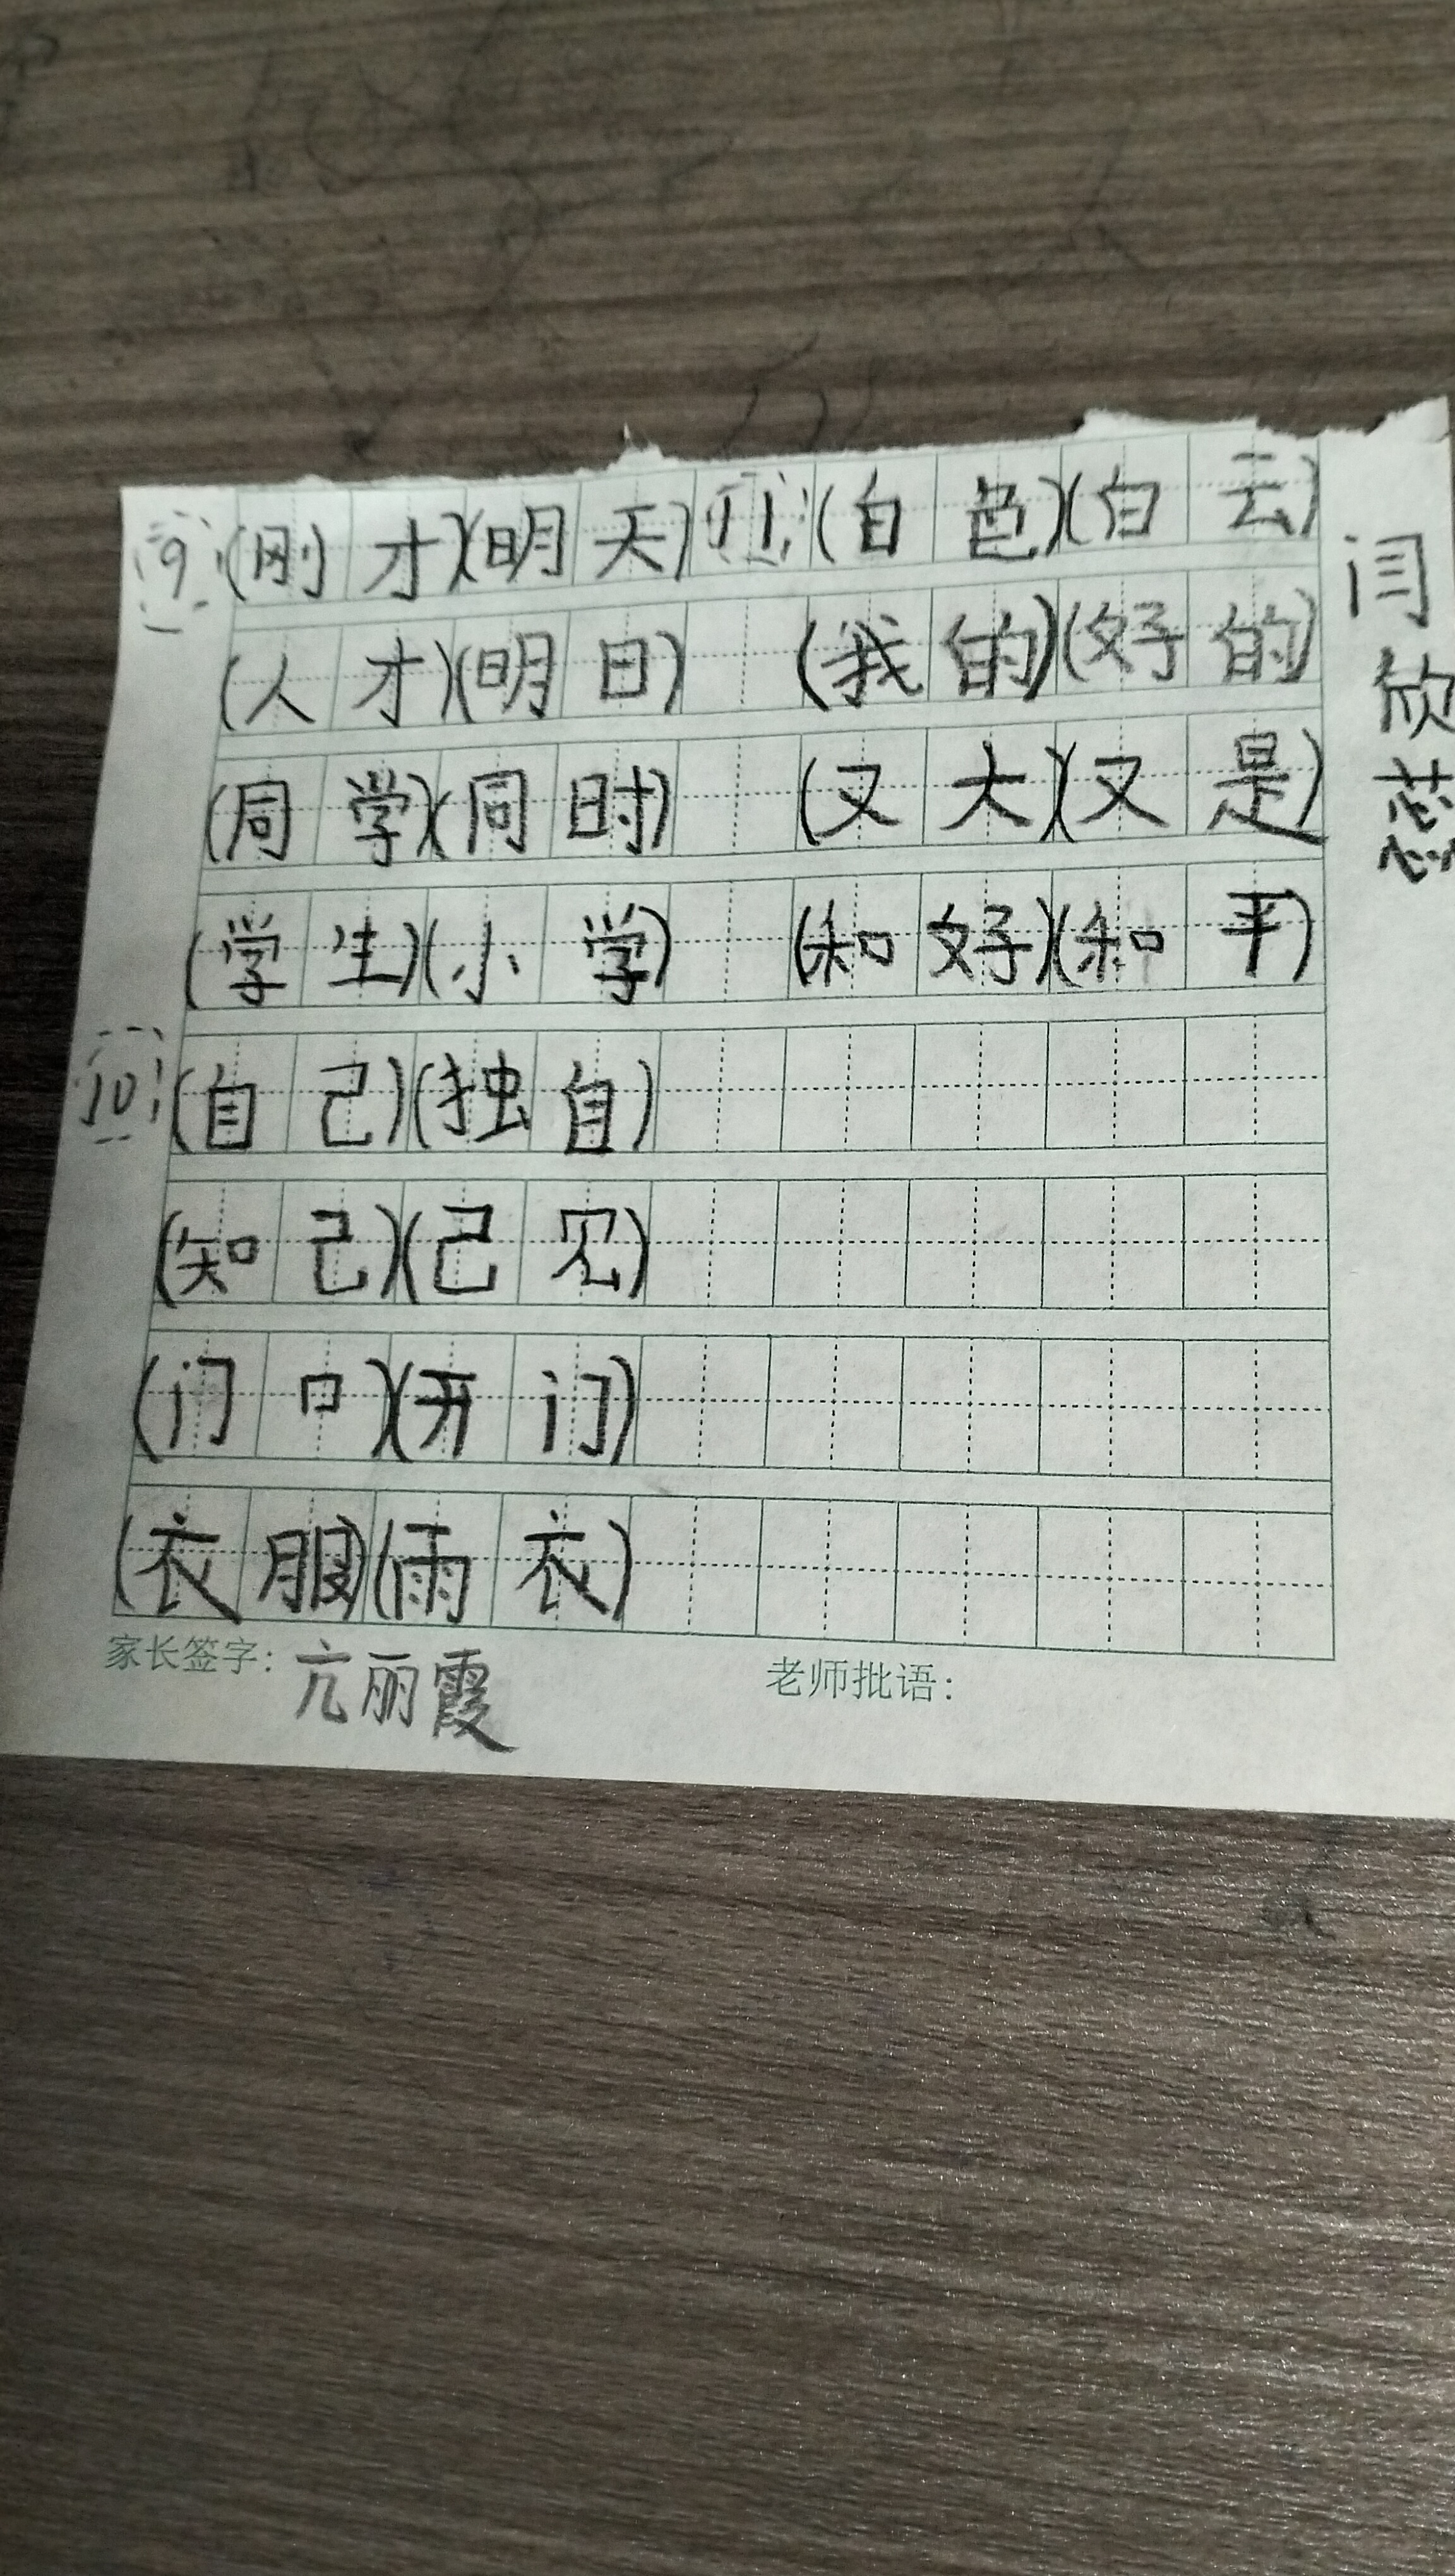 9 (刚才)(明天) 11 (白色)(白云)
(人才)(明日) (我的)(好的)
(同学)(同时) (又大)(又是)
(学生)(小学) (和好)(和平)
10 (自己)(独自)
(知己)(己见)
(门口)(开门)
(衣服)(雨衣)
家长签字: 亢丽霞 老师批语:
闫欣蕊